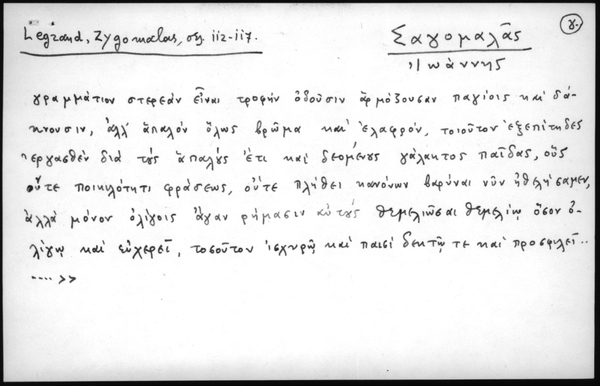 γ.
Legrand, Zygomalas, σελ. 112-117.
Ζυγομαλᾶς
Ἰωάννης
γραμμάτιον στερεὰν εἶναι τροφὴν ὀδοῦσιν ἁρμόζουσαν παγίοις καὶ δά-
κνουσιν, ἀλλ' ἁπαλὸν ὅλως βρῶμα καὶ ἐλαφρόν, τοιοῦτον ἐξεπίτηδες
ἐργασθὲν διὰ τοὺς ἁπαλοὺς ἔτι καὶ δεομένους γάλακτος παῖδας, οὓς
οὔτε ποικιλότητι φράσεως, οὔτε πλήθει κανόνων βαρύναι νῦν ἠθελήσαμεν,
ἀλλὰ μόνον ὀλίγοις ἄγαν ῥήμασιν αὐτοὺς θεμελιῶσαι θεμελίῳ ὅσον ὀ-
λίγῳ καὶ εὐχερεῖ, τοσοῦτον ἰσχυρῷ καὶ παισὶ δεκτῷ τε καὶ προσφιλεῖ..
....>>